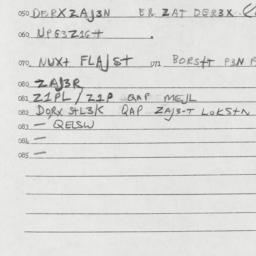 050 DEPXZAJ3N ER ZAT DGR3X
060 UPG3Z1G+
070 NUX+ FLAJS+ 071 BORS++ P3N
080 ZAJ3R
081 Z1PL / Z1P QAP MEJL
082 DQRX S+L3/K QAP ZAJ3-T LOKS+N
083 — QELSW
084 —
085 —